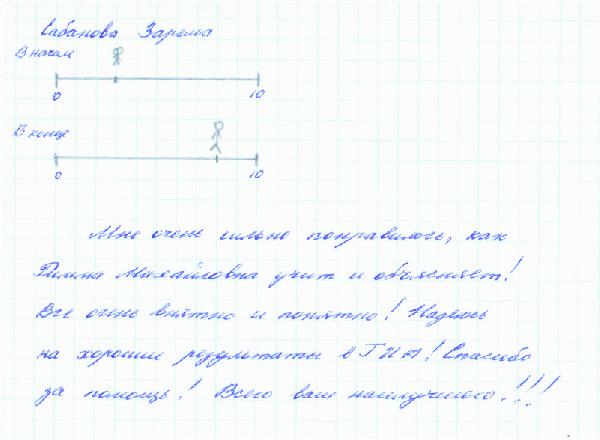 Сабанова Зарема
В начале
0 10
В конце
0 10
Мне очень сильно понравилось, как
Михайловна учит и объясняет!
Все очень внятно и понятно! Надеюсь
на хорошие результаты в ГИА! Спасибо
за помощь! Всего вам наилучшего!!!